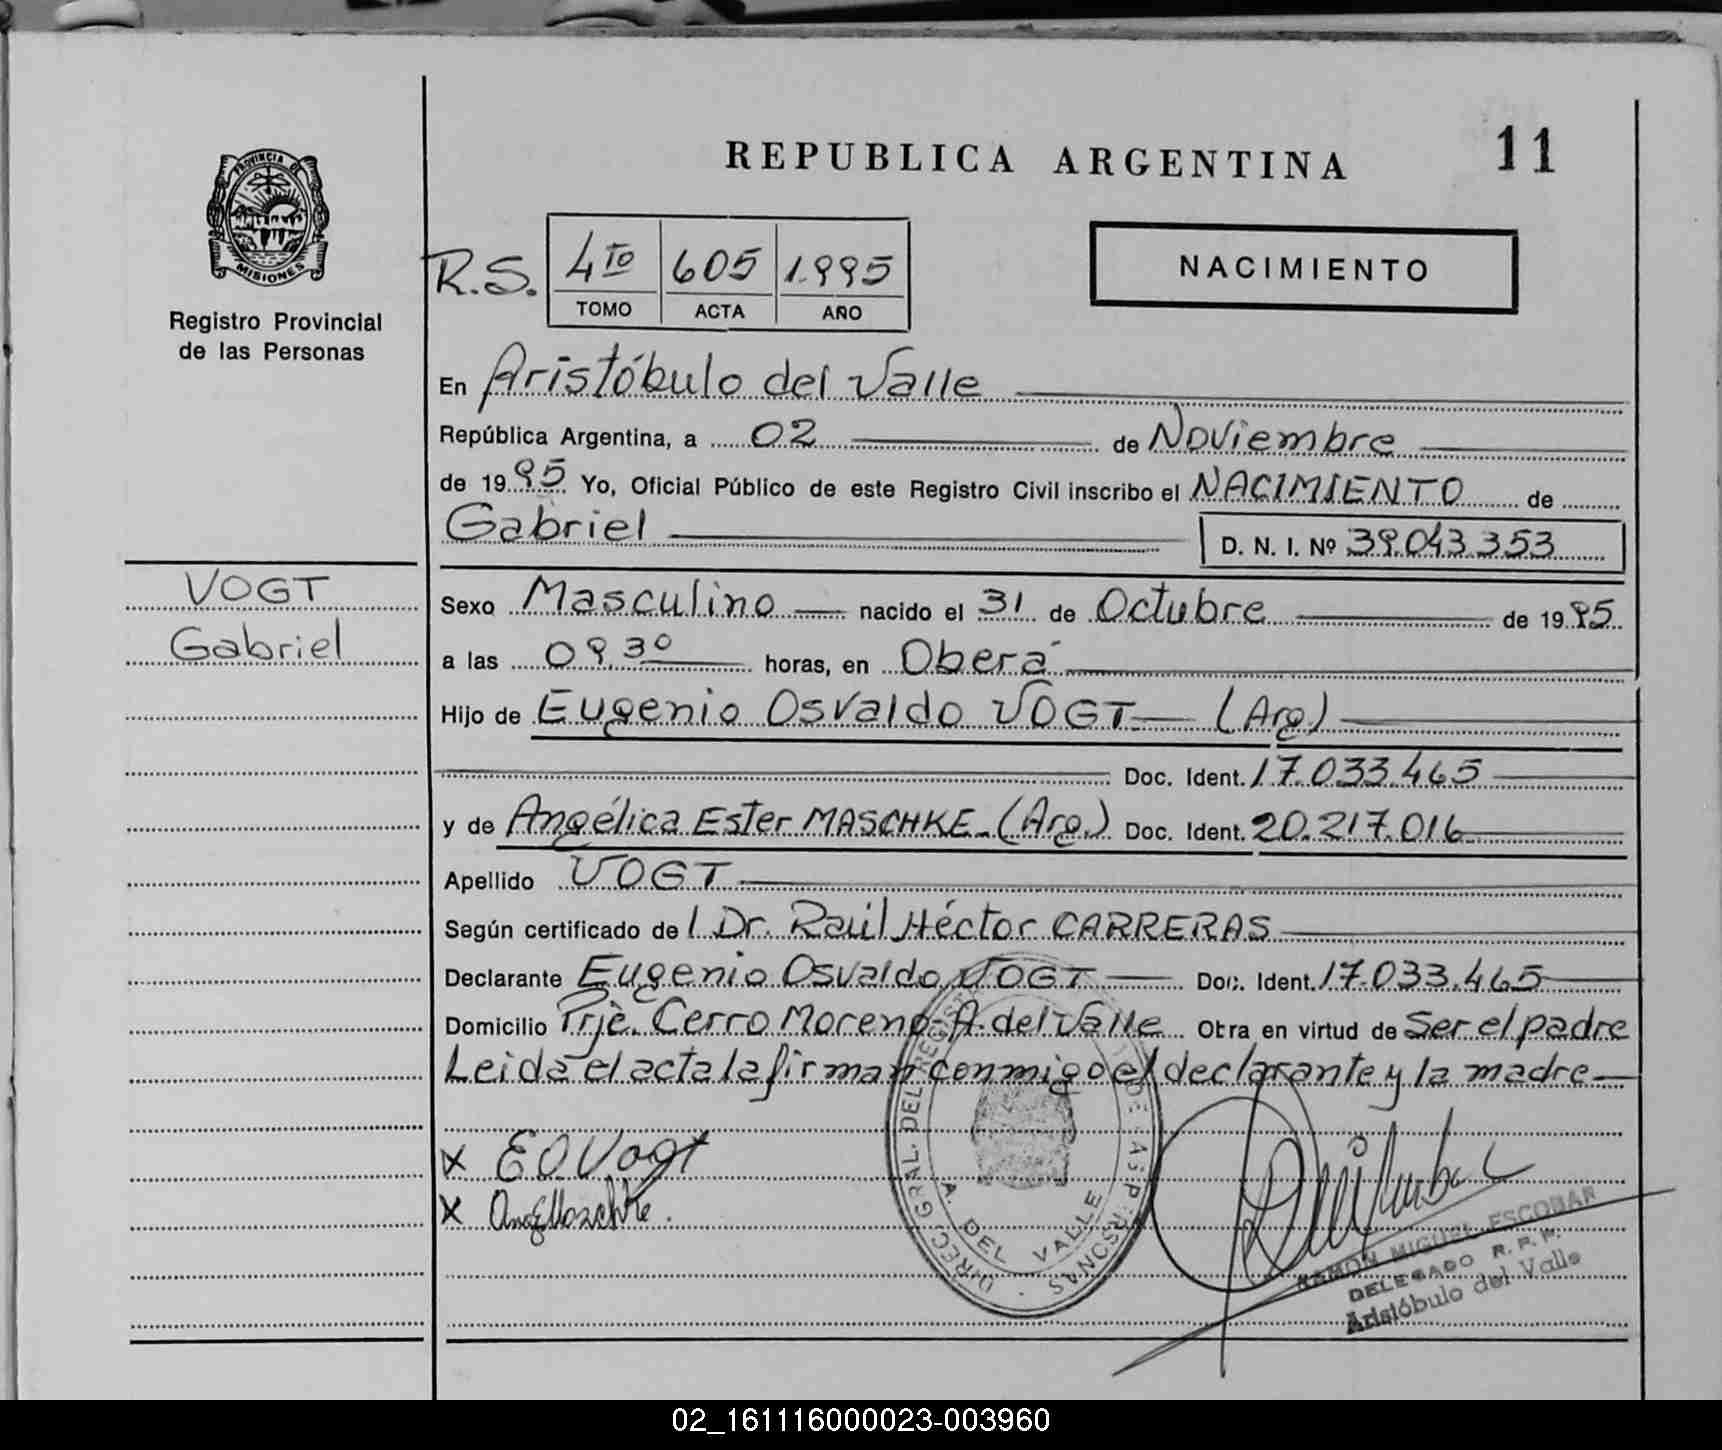 REPUBLICA ARGENTINA
11
PROVINCIA DE
MISIONES
Registro Provincial
de las Personas
R.S.
4to 605 1.995
TOMO ACTA AÑO
NACIMIENTO
En Aristóbulo del Valle
República Argentina, a 02 de Noviembre
de 1995 Yo, Oficial Público de este Registro Civil inscribo el NACIMIENTO de
Gabriel D. N. I. Nº 39.043.353
VOGT
Gabriel
Sexo Masculino nacido el 31 de Octubre de 1995
a las 09.30 horas, en Oberá
Hijo de Eugenio Osvaldo VOGT (Arg)
Doc. Ident. 17.033.465
y de Angélica Ester MASCHKE (Arg.) Doc. Ident. 20.217.016
Apellido VOGT
Según certificado de l Dr. Raúl Héctor CARRERAS
Declarante Eugenio Osvaldo VOGT Doc. Ident. 17.033.465
Domicilio Prje. Cerro Moreno-A. del Valle Obra en virtud de Ser el padre
Leida el acta la firman conmigo el declarante y la madre
x E O Vogt
x Ang EMaschke.
DIREC. GRAL. DEL REGISTRO DE LAS PERSONAS
A. DEL VALLE
RAMON MIGUEL ESCOBAR
DELEGADO R. P. P.
Aristóbulo del Valle
02_161116000023-003960